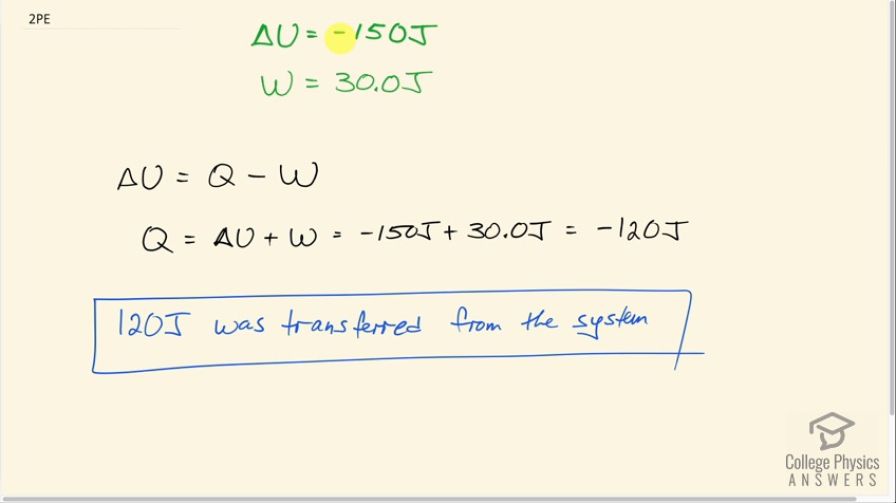 2PE
ΔU = -150J
W = 30.0J
ΔU = Q - W
Q = ΔU + W = -150J + 30.0J = -120J
120J was transferred from the system
College Physics
ANSWERS